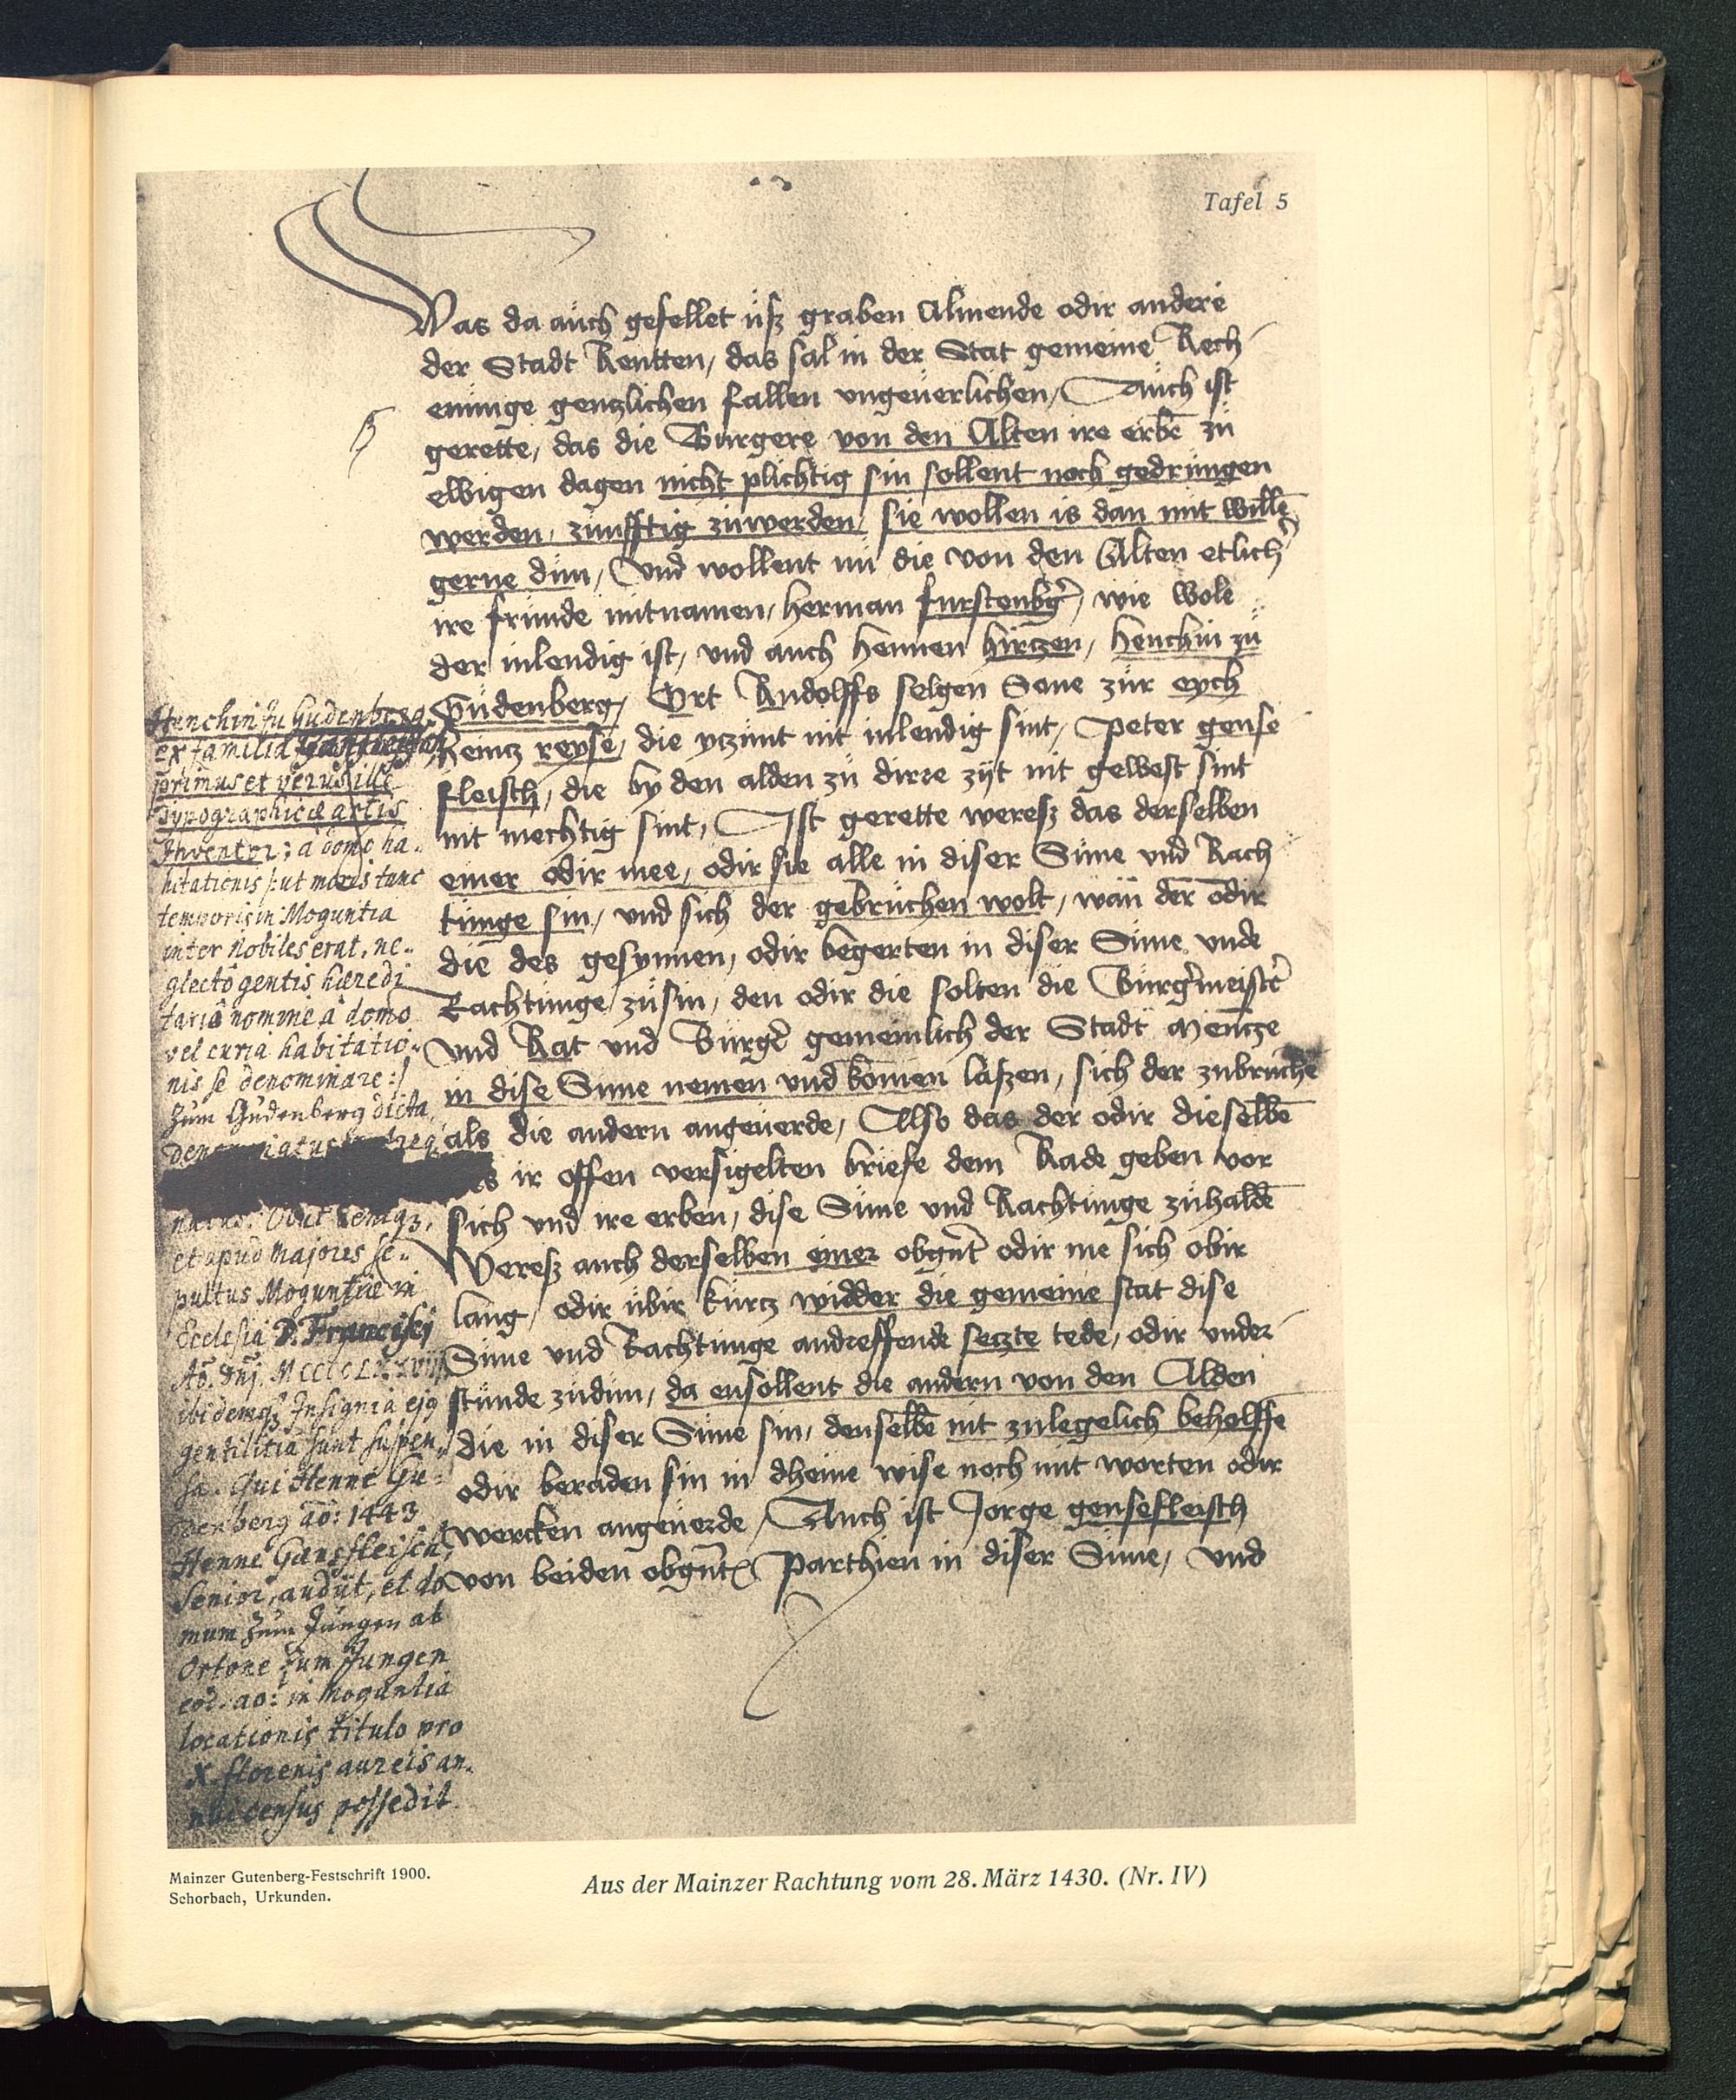 Tafel 5
Was da auch gefellet usz graben Almende odir andere
der Stadt Rentten, das sal in der Stat gemeine Rech
enunge genzlichen fallen ungeuerlichen, Auch ist
gerette, das die Burgere von den Alten ire erbē zu
ewigen dagen nicht plichtig sin sollent noch gedrungen
werden, zunfftig zuwerden, sie wollen is dan mit willē
gerne dun, Und wollent nu die von den Alten etlich
ire frunde mitnamen, herman furstenbg̃, wie wole
der inlendig ist, und auch hennen hirczen, henchin zu
Gudenberg, Ort Rudolffs selgen Sone zur eych
Heincz reyse, die yczunt nit inlendig sint, Peter gense
fleisch, die by den alden zu dirre zyt nit gewest sint
nit mechtig sint, Ist gerette weresz das derselben
einer odir mee, odir sie alle in diser Sune und Rach
tunge sin, und sich der gebruchen wolt, wan der odir
die des gesynnen, odir begerten in diser Sune unde
Rachtunge zusin, den odir die solten die Burg̃meistẽ
Und Rat und Burgẽ gemeinlich der Stadt Mencze
in dise Sune nemen und komen laszen, sich der zubruchē
als die andern angeuerde, Also das der odir dieselbē
ir offen versigelten briefe dem Rade geben vor
sich und ire erben, dise Sune und Rachtunge zuhaldē
Weresz auch derselben einer obgnt̃ odir me sich obir
lang, odir ubir kurcz widder die gemeine stat dise
Sune und Rachtunge andreffende seczte tede, odir under
stunde zudun, da ensollent die andern von den Alden
die in diser Sune sin, denselbē nit zulegelich behelffe
odir beraden sin in dheine wise noch mit worten odir
wercken angeuerde, Auch ist Jorge gensefleisch
von beiden obgnt̃ Parthien in diser Sune, und
Henchin zu Gudenberg
ex familia
primus et verus ille
Typographicæ artis
Inventor; à domo ha-
bitationis |: ut moris tunc
temporis in Moguntia
inter Nobiles erat, ne-
glectô gentis hæredi
tariâ nomine â domo
vel curia habitatio-
nis se denominare :|
Zum Gudenberg dicta
Obut
et apud Majores se-
pultus Moguntiæ in
Ecclesia D. Francisci
Ao. Dnj.
ibidemqz Insignia ejq
gentilitia sunt suspen-
sa. Qui Henne Gu-
denberg ao: 1443
Henne Gänsfleisch
Senior, audiit, et do
mum Zum Jungen ab
Ortone Zum Jungen
eod. ao: in Moguntia
locationis titulo pro
X. florenis aureis an.
nui census possedit
Mainzer Gutenberg-Festschrift 1900.
Schorbach, Urkunden.
Aus der Mainzer Rachtung vom 28. März 1430. (Nr. IV)